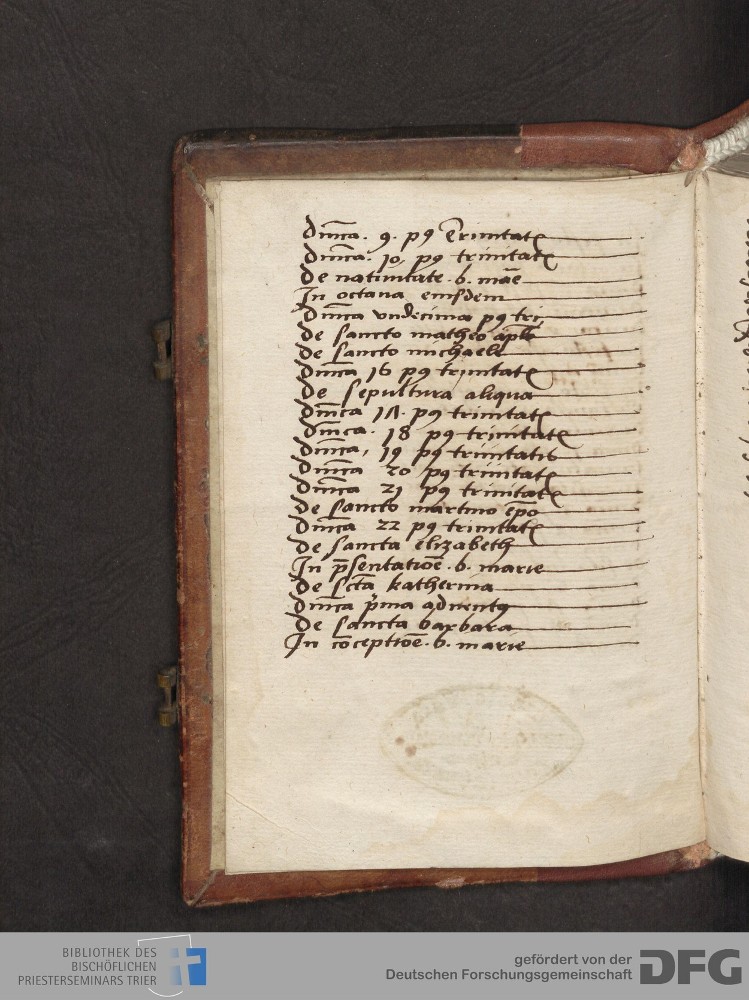 dm̅ca. 9. pꝰ Trinitatꝭ
dm̅ca. 10, pꝰ trinitatꝭ
de natiuitate. b. mãe
In octaua eiusdem
dm̅ca vndecima pꝰ tri,
de sancto matheo ap̅lo
de sancto michaele
dm̅ca 16 pꝰ trinitatꝭ
de sepultura aliqua
dm̅ca 17. pꝰ trinitatꝭ
dm̅ca. 18 pꝰ trinitatꝭ
dm̅ca, 19 pꝰ trinitatis
dm̅ca 20 pꝰ trinitatꝭ
dm̅ca 21 pꝰ trinitatꝭ
de sancto martino ep̅o
dm̅ca 22 pꝰ trinitatꝭ
de sancta elizabeth
In p̅sentatioẽ. b. marie
de sct̅a katherina
dm̅ca p̅ma aduentꝰ
de sancta barbara
In cõceptioẽ. b. marie
BIBLIOTHEK DES
BISCHÖFLICHEN
PRIESTERSEMINARS TRIER
gefördert von der
Deutschen Forschungsgemeinschaft
DFG